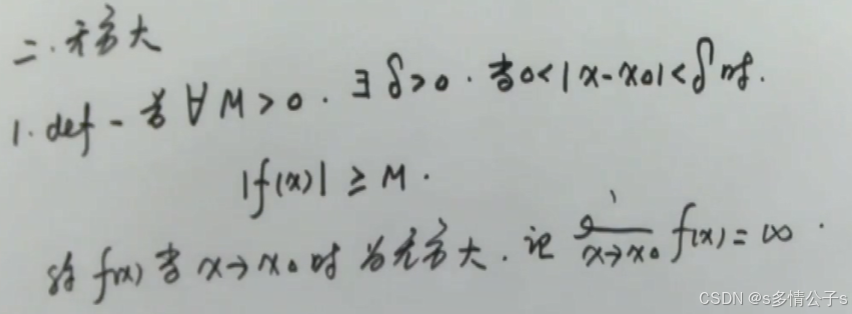 二.无穷大
1. def - 若∀M>0. ∃δ>0. 当0<|x-x0|<δ时.
|f(x)| ≥ M.
称 f(x) 当 x→x0 时 为无穷大. 记 lim x→x0 f(x)=∞.
CSDN @s多情公子s